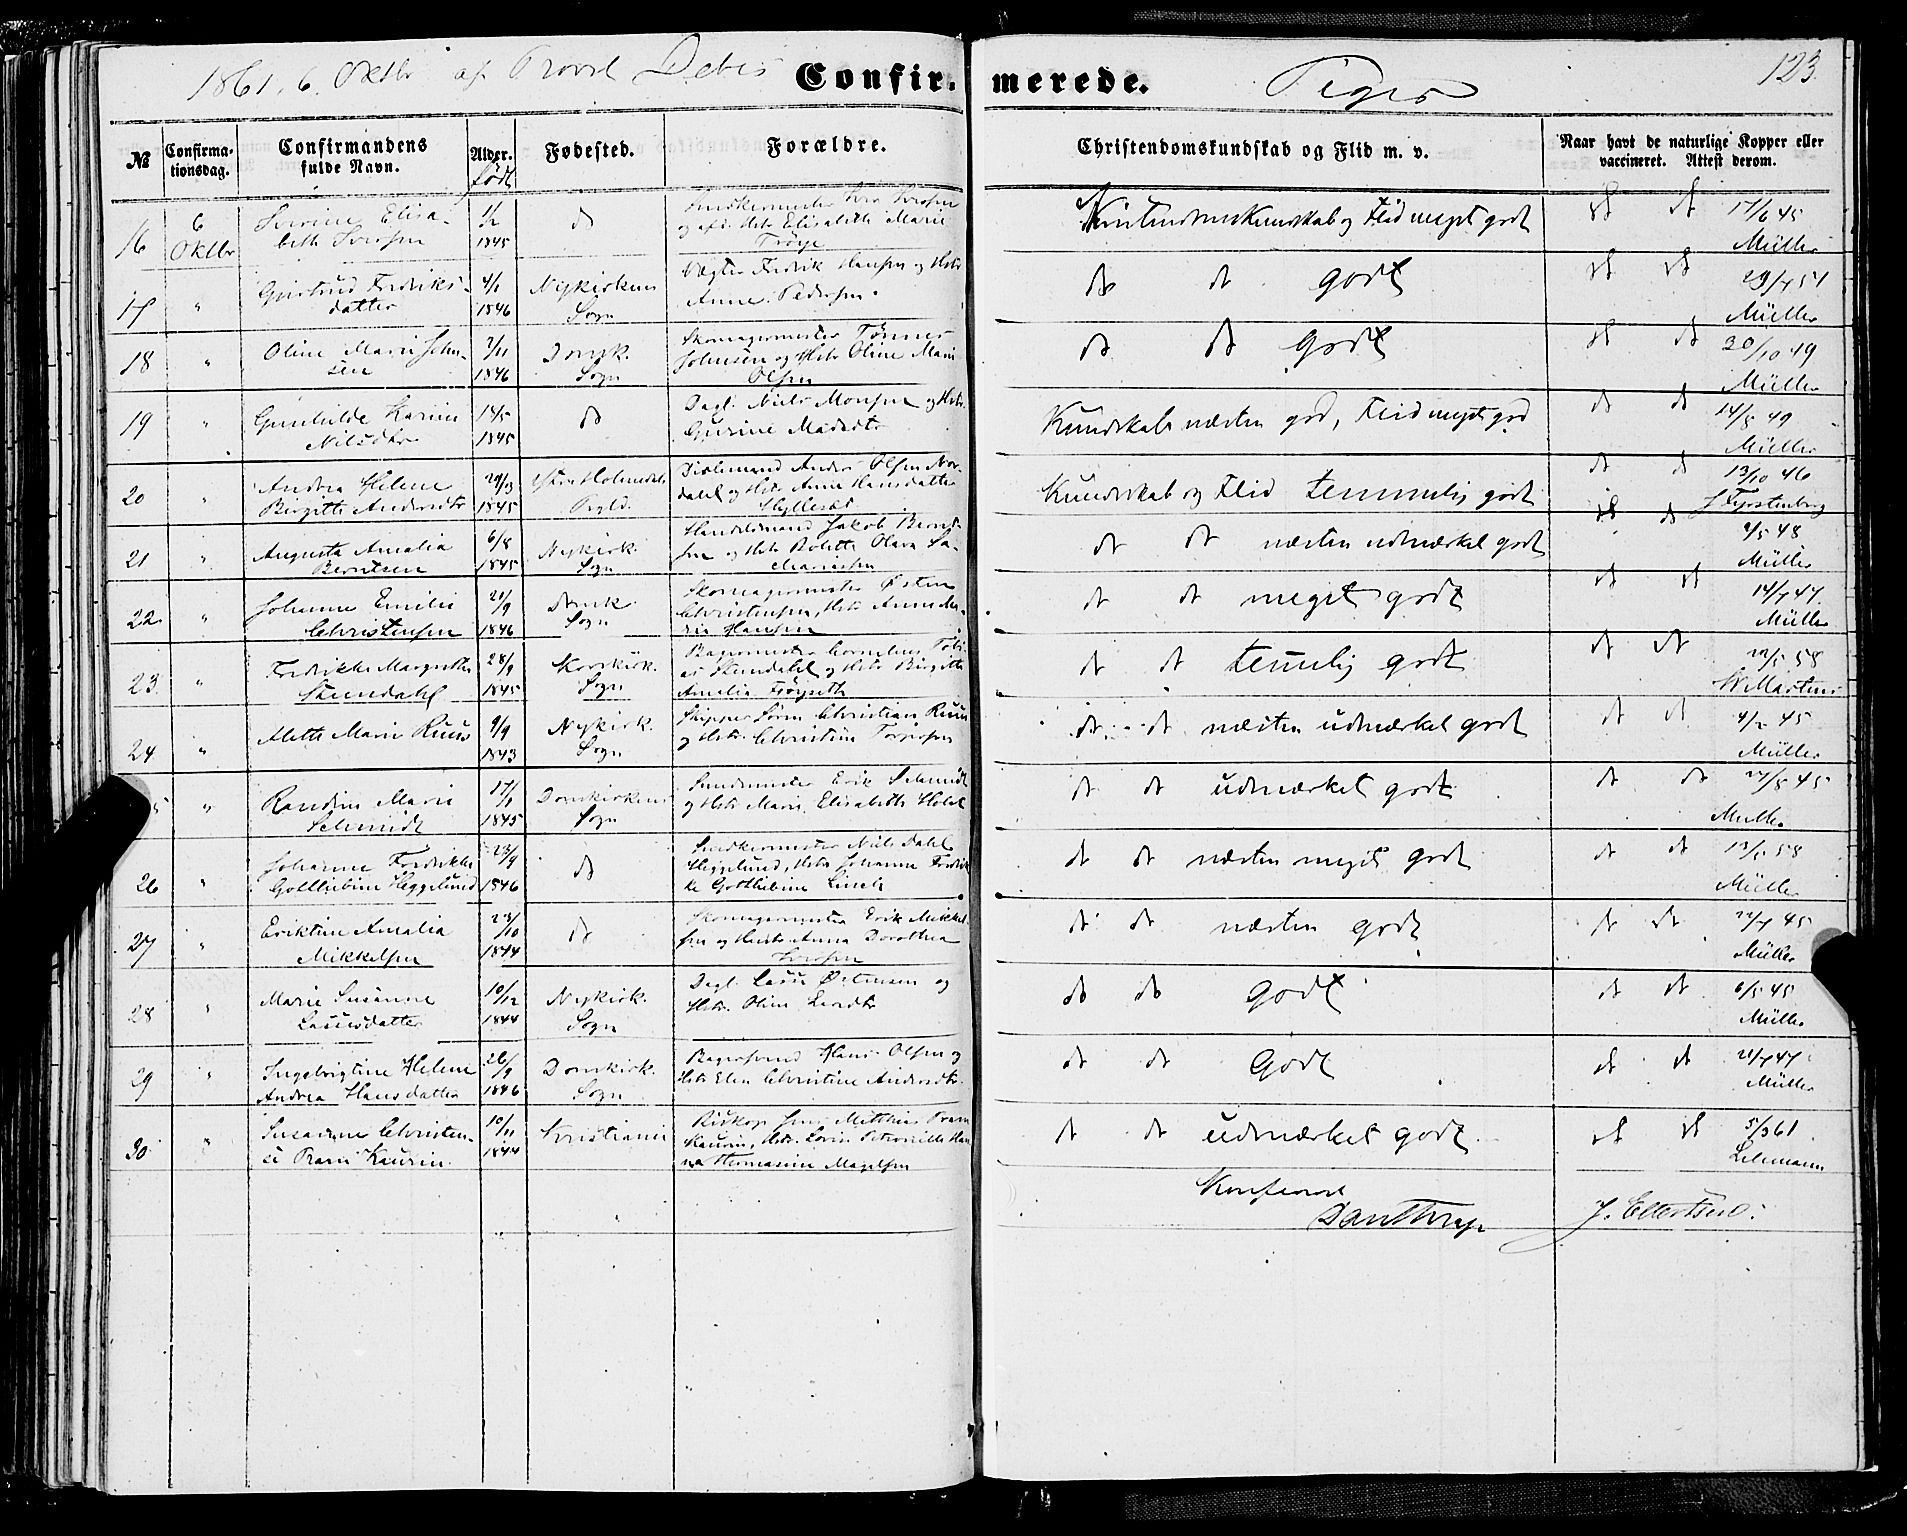 1861. 6. Oktbr af Provst Debes Confir- merede. Piger 123.
№ Confirma-tionsdag. Confirmandens fulde Navn. Alder. født Fødested. Forældre. Christendomskundskab og Flid m. v. Naar havt de naturlige Kopper eller vaccineret. Attest derom.
16 6 Oktbr Severine Elisa-
beth 1/2 1845 do Snedkermester
og Hstr Elisabeth Marie
Christendomskundskab og Flid meget godt dt dt 17/6 45
Müller
17 " Fredriks-
datter 4/1 1846 Nykirkens
Sogn Vægter Fredrik Hansen og Hstr
Anne Pedersen.
dt dt godt dt dt 29/7 51
Müller
18 " Oline Marie John-
sen 7/11 1846 Domk.
Sogn Skomagermester Tønnes
Johnsen og Hstr Oline Marie
Olsen
dt dt Godt dt dt 20/10 49
Müller
19 " Gunhilde Karine
Nilsdtr 14/5 1845 do Dagl. Niels Monsen og Hstr.
Gurine Madsdtr
Kundskab næsten god, Flid meget god dt dt 14/8 49
Müller
20 " Andrea Helene
Birgitte Andersdtr 29/3 1845 Holmedals
Prgld. Anders Olsen Nor-
dahl og Hstr Anne Hansdatter
Kundskab og Flid temmelig godt dt dt 13/10 46
21 " Augusta Amalia
Berntsen 6/8 1845 Nykirk.
Sogn Handelsmand Jakob Bernt-
sen og Hstr Bolette Olava Za-
chariassen
dt dt næsten udmærket godt dt dt 9/5 48
Müller
22 " Johanne Emilie
Christensen 21/9 1846 Domk.
Sogn Skomagermester Østen
Christensen, Hstr Anne Ma-
ria Hansen
dt dt meget godt dt dt 14/7 47
Müller
23. " Fredrikke Margrethe
Steindahl 28/9 1845 Korskirk.
Sogn Bagermester Cornelius Tobi-
as Steindahl og Hstr Birgitte
Amalia Frøyseth
dt dt temlig godt dt dt 58
W Martens
24 " Alette Marie Ruus 9/9 1843 Nykirk.
Sogn Skipper Søren Christian Ruus
og Hstr. Christine
dt dt næsten udmærket godt dt dt 45
Müller
5 " Randine Marie
Schmidt 17/1 1845 Domkirkens
Sogn Smedmester Erik Schmidt
og Hstr Marie Elisabeth Holst
dt dt udmærket godt dt dt 27/8 45
Müller
26 " Johanne Fredrikke
Gottliebine Heggelund 23/9 1846 do Snedkermester Niels Dahl
Heggelund, Hstr Johanne Fredrik-
ke Gottliebine Linck
dt dt næsten meget godt dt dt 58
Müller
27 " Eriktine Amalia
Mikkelsen 23/10 1844 do Skomagermester Erik Mikkel-
sen og Hustr Anna Dorothea
Iversen
dt dt næsten godt dt dt 22/7 45
Müller
28 " Marie Susanne
Lassesdatter 10/12 1844 Nykirk.
Sogn Dagl. Lasse Østensen og
Hstr. Oline
dt dt godt dt dt 6/5 45
Müller
29 " Ingebrigtine Helene
Andrea Hansdatter 26/9 1846 Domkirk.
Sogn Bagersvend Hans Olsen og
Hstr Elen Christine Andersdtr.
dt dt Godt dt dt 21/7 47
Müller
30 " Susanne Christen-
ce Pram Kaurin. 10/11 1844 Kristiania Biskop Jens Matthias Pram
Kaurin, Hstr. Lovise Petronelle Han-
na Hermanine Magelsen
dt dt udmærket godt. dt dt 5/3 61
Lehmann
Konfereret
J. Ellertsen.